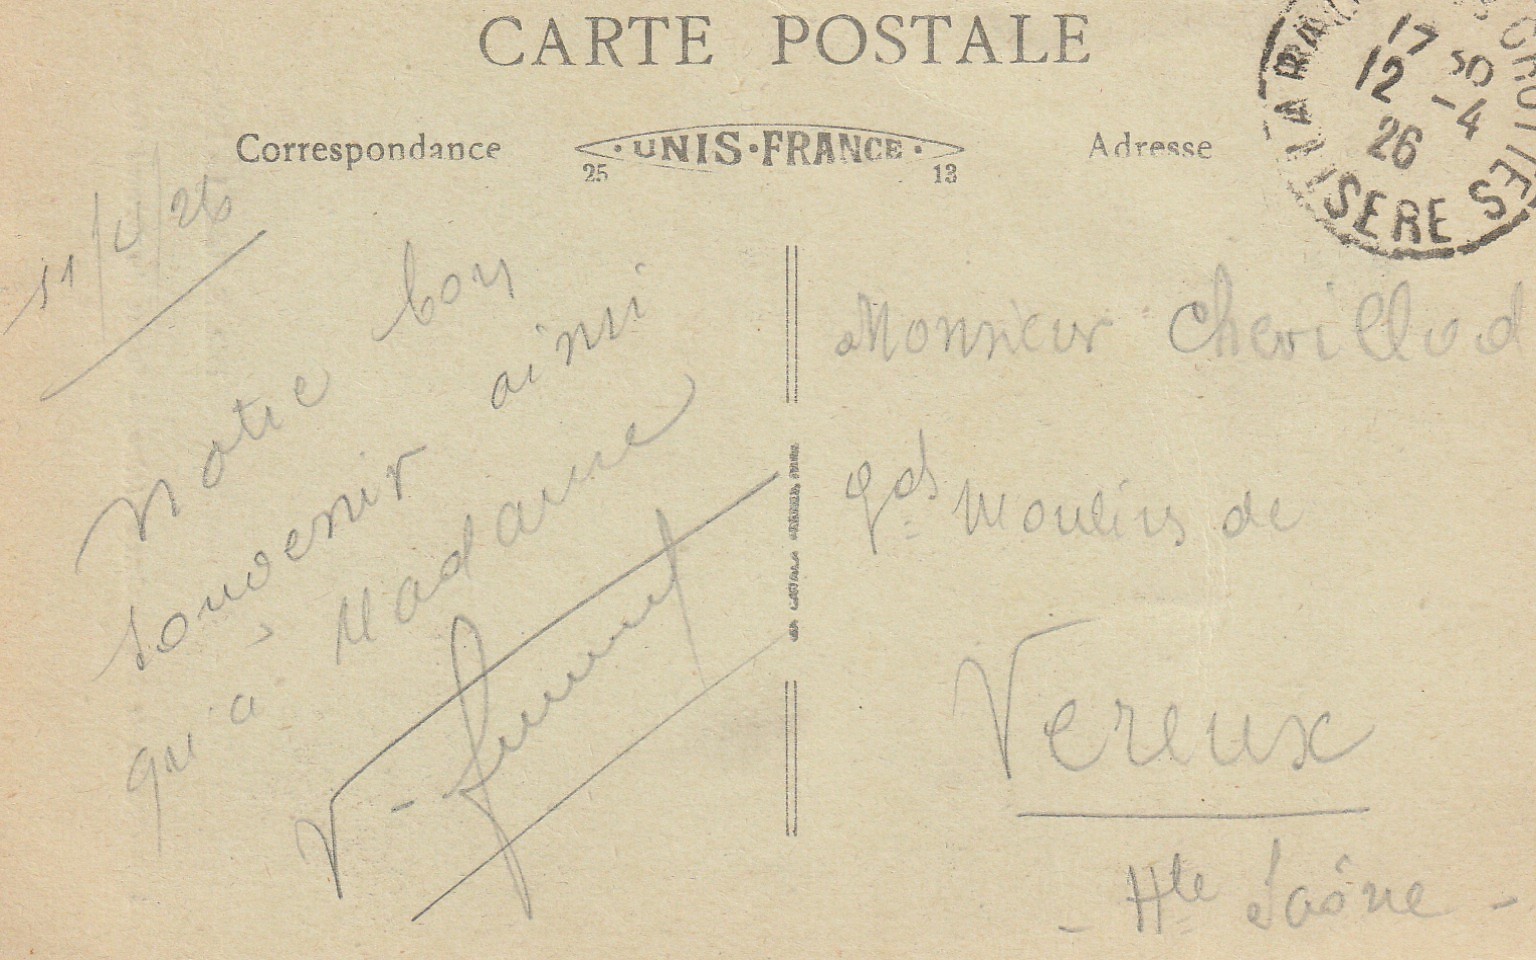 CARTE POSTALE
Correspondance
· UNIS·FRANCE ·
25 13
Adresse
17 30
12 -4
26
ISERE
11/4/26
Notre bon
souvenir ainsi
qu'à Madame
V-
Monsieur Chevillod
Gds Moulins de
Vereux
- Hte Saône -